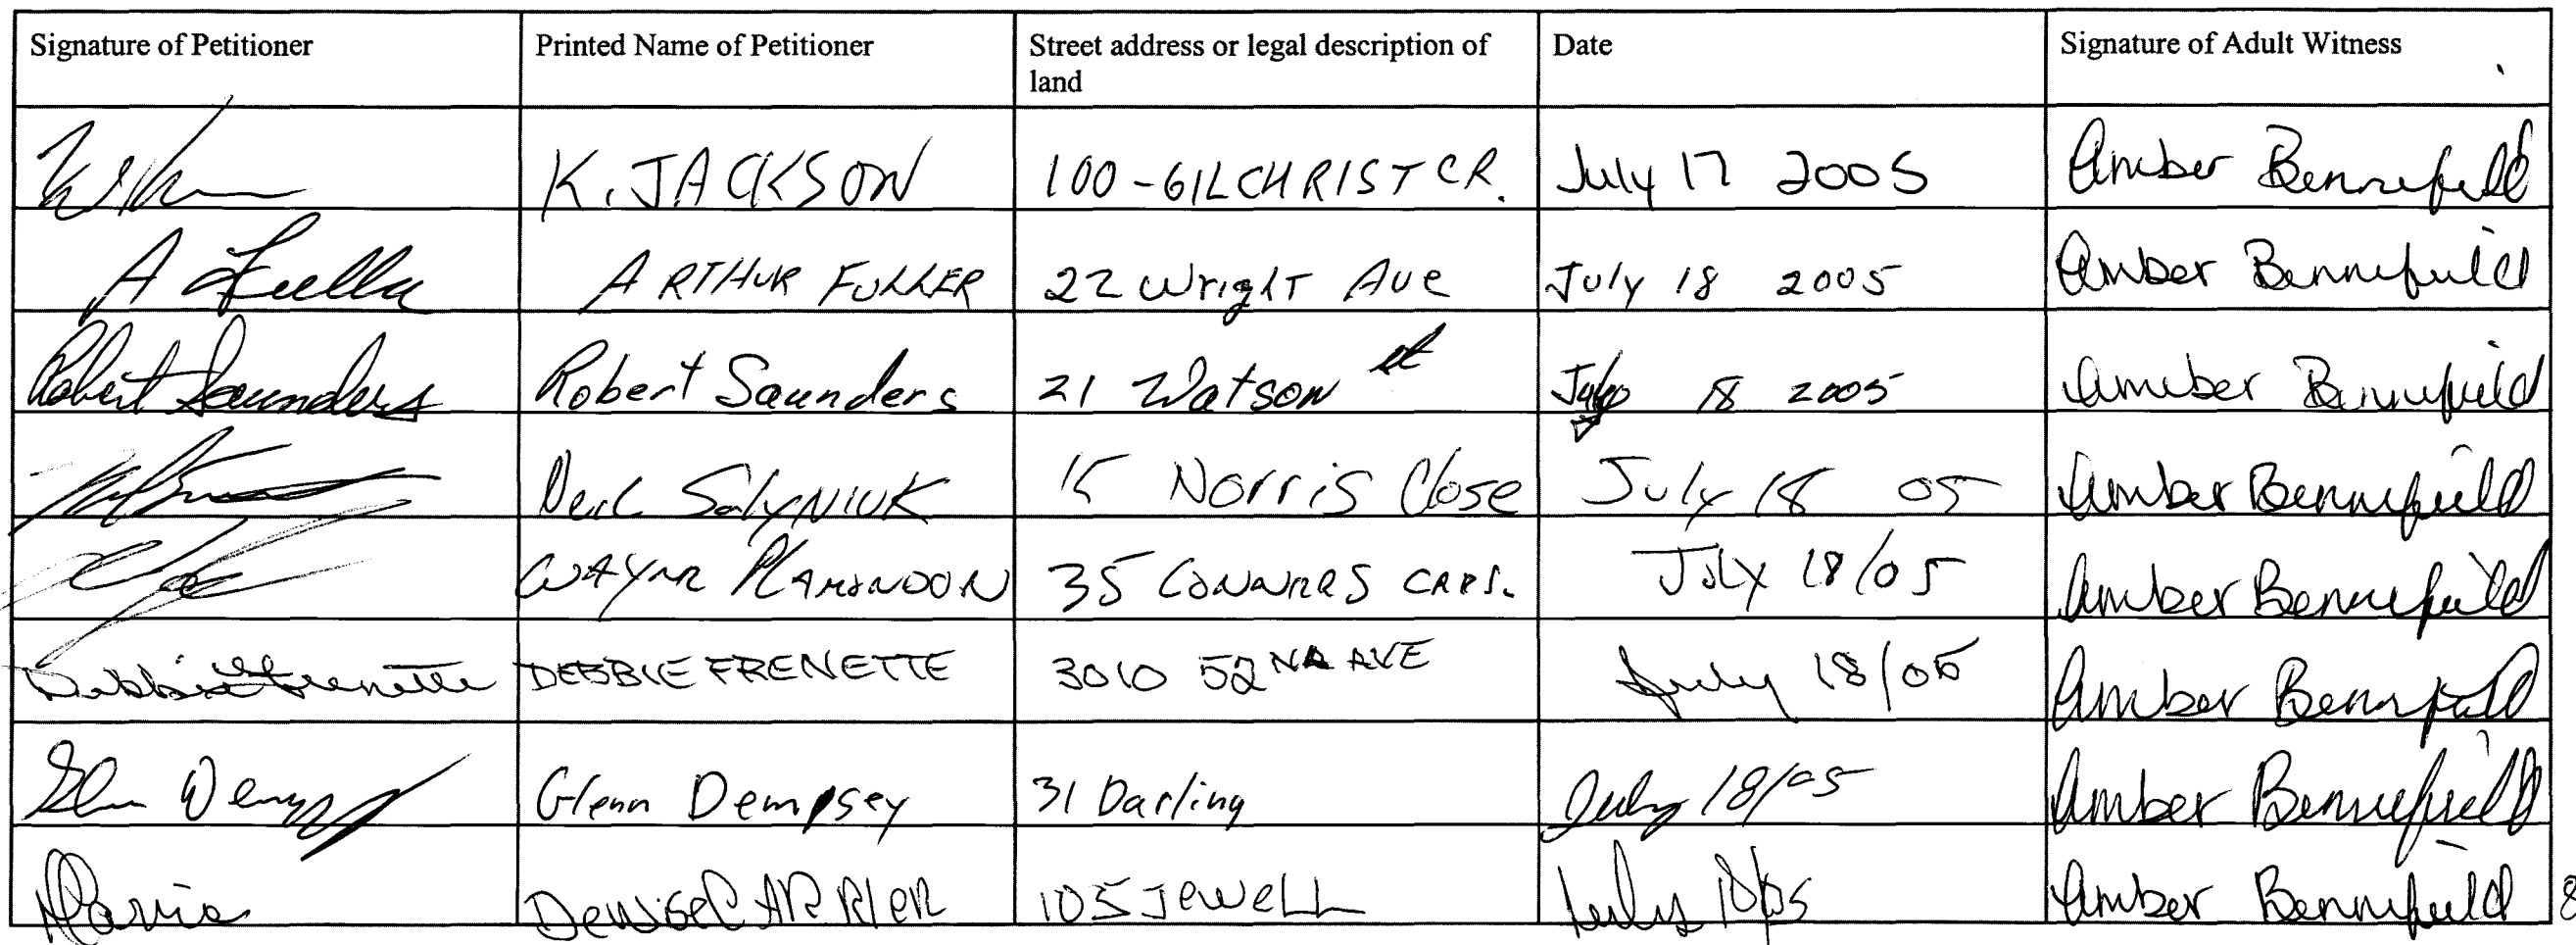 Signature of Petitioner Printed Name of Petitioner Street address or legal description of land Date Signature of Adult Witness
K. JACKSON 100-GILCHRIST CR. July 17 2005 Amber Bennefield
A Fuller ARTHUR FULLER 22 Wright Ave July 18 2005 Amber Bennefield
Robert Saunders Robert Saunders 21 Watson st July 18 2005 Amber Bennefield
Neil 15 Norris Close July 18 05 Amber Bennefield
WAYNE PLAMONDON 35 CONNORS CRES. July 18/05 Amber Bennefield
Debbie Frenette DEBBIE FRENETTE 3010 52ND AVE July 18/05 Amber Bennefield
Glenn Dempsey 31 Darling July 18/05 Amber Bennefield
DENISE CARRIER 105 JEWELL July 18/05 Amber Bennefield 8